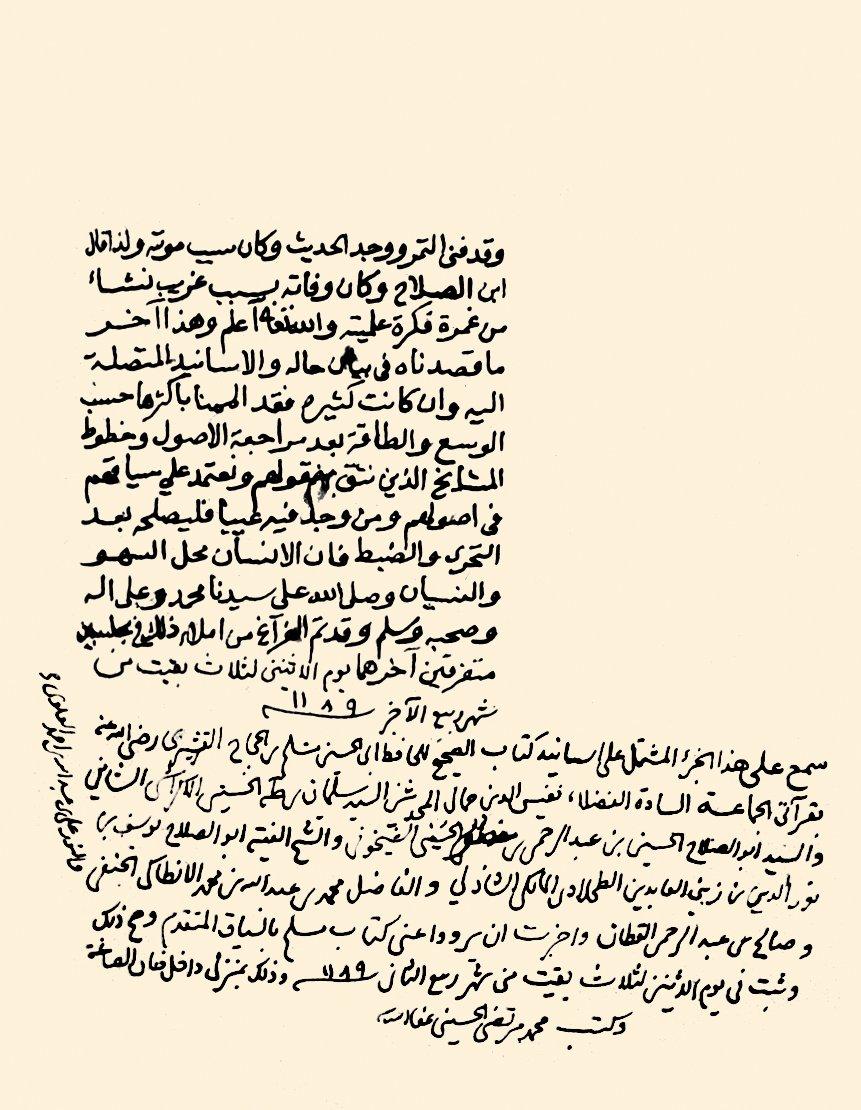 وقد فنى التمر ووجد الحديث وكان سبب موته ولذا قال
ابن الصلاح وكان وفاته بسبب غريب نشاء
من غمرة فكرة علمية والله تعالى أعلم وهذا آخر
ما قصدناه في بيان حاله والاسانيد المتصلة
اليه وان كانت كثيره فقد الممنا باكثرها حسب
الوسع والطاقة بعد مراجعة الاصول وخطوط
المشايخ الذين نثق بهم ونعتمد علي سياقهم
في اصولهم ومن وجد فيه عيبا فليصلحه بعد
التحرى والضبط فان الانسان محل السهو
والنسيان وصلى الله على سيدنا محمد وعلى اله
وصحبه وسلم وقد تم الفراغ من املاء ذلك في مجلسين
متفرقين آخرهما يوم الاثنين لثلاث بقيت من
شهر ربيع الآخر ١١٨٩
سمع على هذا الجزء المشتمل على اسانيد كتاب الصحيح للحافظ ابى الحسين مسلم بن الحجاج القشيرى رضى الله عنه
بقرآتى الجماعة السادة الفضلاء نفيس الدين جمال المحدثين السيد سليمان بن طه الحسينى الشافعي
والسيد ابو الصلاح الحسينى بن عبد الرحمن بن الحسينى الشيخونى والشيخ الفقيه ابو الصلاح يوسف بن
نور الدين بن زين العابدين الطحلاوى المالكى الشاذلي والفاضل محمد بن عبد الله بن محمد الانطاكى الحنفى
وصالح بن عبد الرحمن القطان واجزت ان يرووا عنى كتاب مسلم بالسياق المتقدم وصح ذلك
وثبت في يوم الاثنين لثلاث بقيت من شهر ربيع الثانى ١١٨٩ وذلك بمنزلى داخل خان الصاغة
وكتب محمد مرتضى الحسينى عفا الله عنه
والنور على بن عبد الله بن احمد العلوى